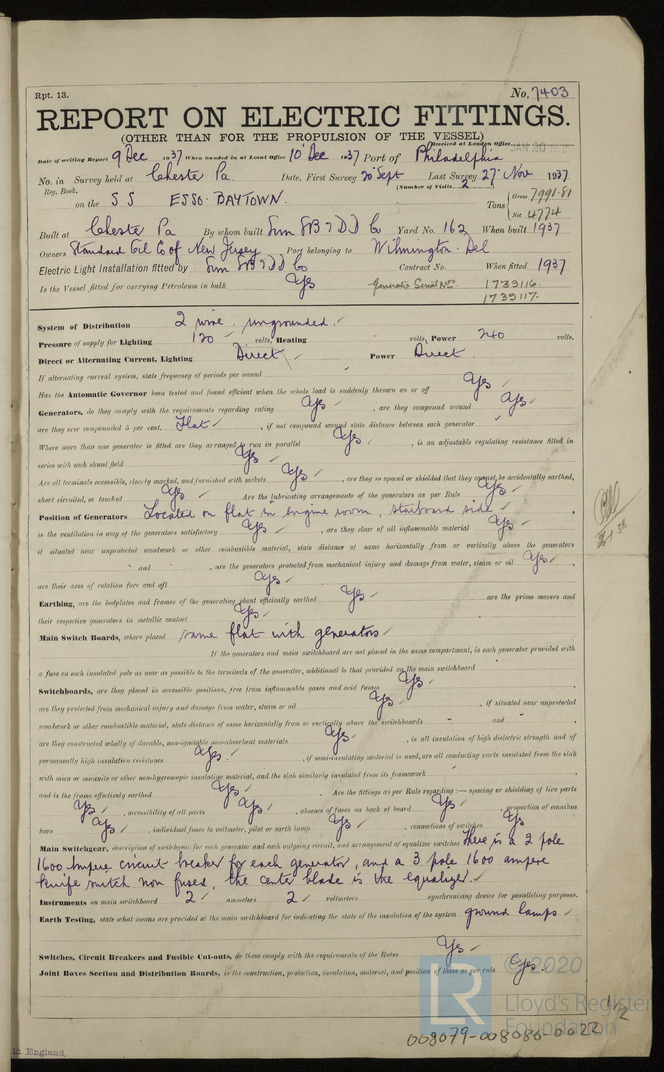 Rpt. 13. No. 7403
REPORT ON ELECTRIC FITTINGS.
(OTHER THAN FOR THE PROPULSION OF THE VESSEL)
Received at London Office JAN 20
Date of writing Report 9 Dec 1937 When handed in at Local Office 10 Dec 1937 Port of Philadelphia
No. in Survey held at Chester Pa. Date, First Survey 20 Sept Last Survey 27 Nov 1937
Reg. Book. (Number of Visits 2
on the SS ESSO-BAYTOWN. Tons { Gross 7991.81
Net 4774
Built at Chester Pa By whom built Sun SB & DD Co Yard No. 162 When built 1937
Owners Standard Oil Co of New Jersey Port belonging to Wilmington. Del
Electric Light Installation fitted by Sun SB & DD Co Contract No. When fitted 1937
Is the Vessel fitted for carrying Petroleum in bulk Yes Generator Serial Nos. 1739116
1739117.
System of Distribution 2 wire. ungrounded.
Pressure of supply for Lighting 120 volts, Heating volts, Power 240 volts.
Direct or Alternating Current, Lighting Direct Power Direct.
If alternating current system, state frequency of periods per second
Has the Automatic Governor been tested and found efficient when the whole load is suddenly thrown on or off Yes
Generators, do they comply with the requirements regarding rating Yes , are they compound wound Yes
are they over compounded 5 per cent. Flat , if not compound wound state distance between each generator
Where more than one generator is fitted are they arranged to run in parallel Yes , is an adjustable regulating resistance fitted in
series with each shunt field Yes
Are all terminals accessible, clearly marked, and furnished with sockets Yes , are they so spaced or shielded that they cannot be accidentally earthed,
short circuited, or touched Yes Are the lubricating arrangements of the generators as per Rule Yes
Position of Generators Located on flat in Engine room, starboard side
is the ventilation in way of the generators satisfactory Yes , are they clear of all inflammable material Yes
if situated near unprotected woodwork or other combustible material, state distance of same horizontally from or vertically above the generators
- and - , are the generators protected from mechanical injury and damage from water, steam or oil Yes ,
are their axes of rotation fore and aft Yes
Earthing, are the bedplates and frames of the generating plant efficiently earthed Yes are the prime movers and
their respective generators in metallic contact Yes
Main Switch Boards, where placed same flat with generators
If the generators and main switchboard are not placed in the same compartment, is each generator provided with
a fuse on each insulated pole as near as possible to the terminals of the generator, additional to that provided on the main switchboard
Switchboards, are they placed in accessible positions, free from inflammable gases and acid fumes Yes
are they protected from mechanical injury and damage from water, steam or oil Yes , if situated near unprotected
woodwork or other combustible material, state distance of same horizontally from or vertically above the switchboards - and -
are they constructed wholly of durable, non-ignitable non-absorbent materials Yes , is all insulation of high dielectric strength and of
permanently high insulation resistance Yes. , if semi-insulating material is used, are all conducting parts insulated from the slab
with mica or micanite or other non-hygroscopic insulating material, and the slab similarly insulated from its framework
and is the frame effectively earthed Yes Are the fittings as per Rule regarding :— spacing or shielding of live parts
Yes , accessibility of all parts Yes , absence of fuses on back of board Yes , proportion of omnibus
bars Yes , individual fuses to voltmeter, pilot or earth lamp Yes , connections of switches Yes
Main Switchgear, description of switchgear for each generator and each outgoing circuit, and arrangement of equalizer switches There is a 2 pole
1600 Ampere circuit breaker for each generator, and a 3 pole 1600 ampere
knife switch non fused, the center blade is the equalizer.
Instruments on main switchboard 2 ammeters 2 voltmeters synchronising device for paralleling purposes.
Earth Testing, state what means are provided at the main switchboard for indicating the state of the insulation of the system ground lamps
Switches, Circuit Breakers and Fusible Cut-outs, do these comply with the requirements of the Rules Yes
Joint Boxes Section and Distribution Boards, is the construction, protection, insulation, material, and position of these as per rule Yes.
© 2020
LR Lloyd's Register
Foundation
1/2
008079-008086-0022
in England.